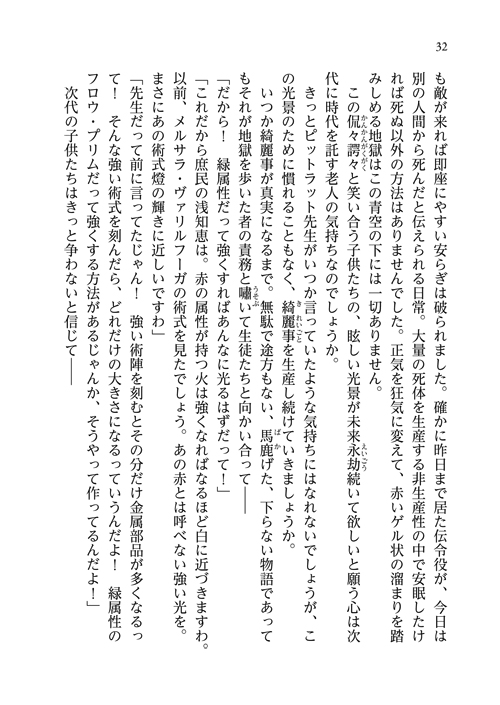 32
も敵が来れば即座にやすい安らぎは破られました。確かに昨日まで居た伝令役が、今日は
別の人間から死んだと伝えられる日常。大量の死体を生産する非生産性の中で安眠したけ
れば死ぬ以外の方法はありませんでした。正気を狂気に変えて、赤いゲル状の溜まりを踏
みしめる地獄はこの青空の下には一切ありません。
この侃々諤々と笑い合う子供たちの、眩しい光景が未来永劫続いて欲しいと願う心は次
代に時代を託す老人の気持ちなのでしょうか。
きっとピットラット先生がいつか言っていたような気持ちにはなれないでしょうが、こ
の光景のために慣れることもなく、綺麗事を生産し続けていきましょうか。
いつか綺麗事が真実になるまで。無駄で途方もない、馬鹿げた、下らない物語であって
もそれが地獄を歩いた者の責務と嘯いて生徒たちと向かい合って――
「だから！　緑属性だって強くすればあんなに光るはずだって！」
「これだから庶民の浅知恵は。赤の属性が持つ火は強くなればなるほど白に近づきますわ。
以前、メルサラ・ヴァリルフーガの術式を見たでしょう。あの赤とは呼べない強い光を。
まさにあの術式燈の輝きに近しいですわ」
「先生だって前に言ってたじゃん！　強い術陣を刻むとその分だけ金属部品が多くなるっ
て！　そんな強い術式を刻んだら、どれだけの大きさになるっていうんだよ！　緑属性の
フロウ・プリムだって強くする方法があるじゃんか、そうやって作ってるんだよ！」
次代の子供たちはきっと争わないと信じて――